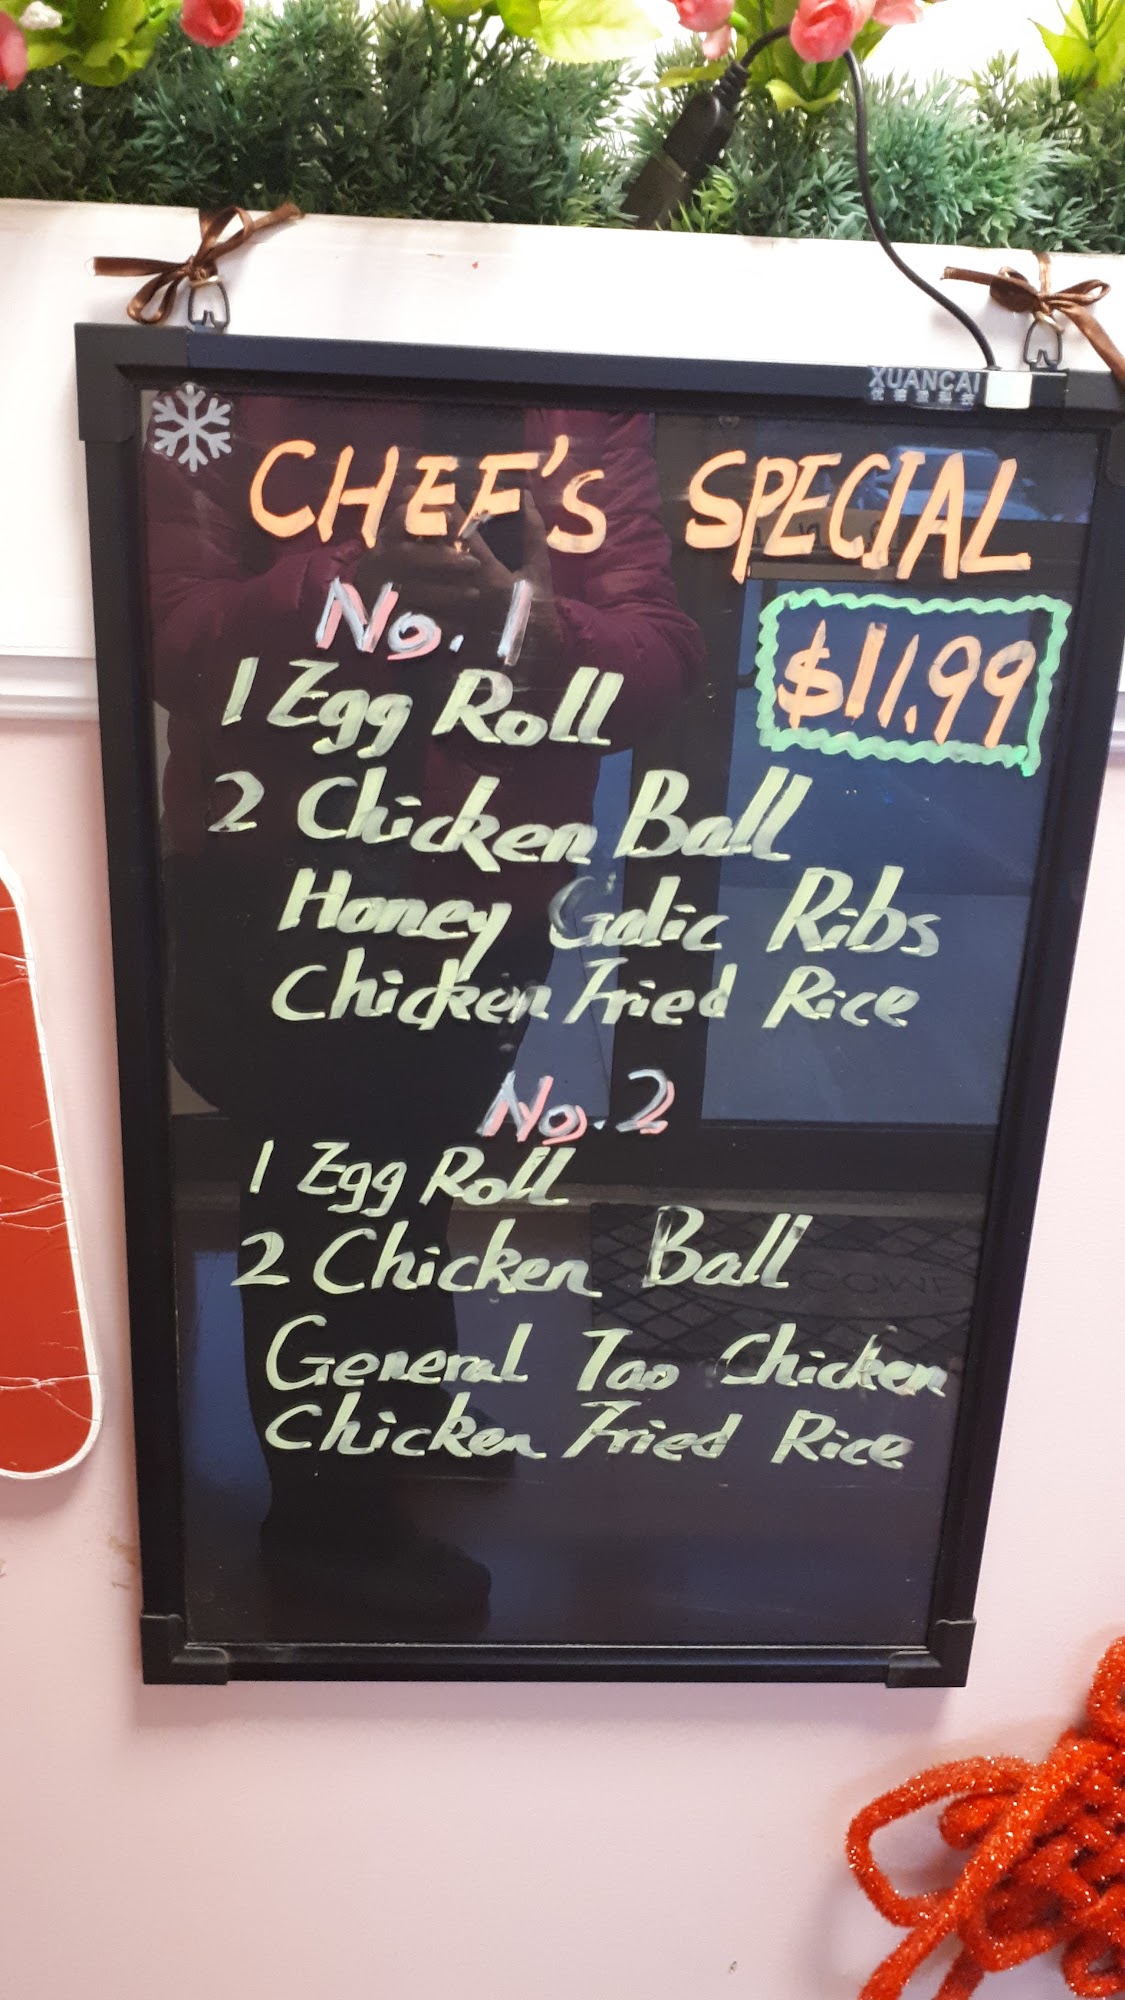 XUANCAI
CHEF'S SPECIAL
No. 1
$11.99
1 Egg Roll
2 Chicken Ball
Honey Galic Ribs
Chicken Fried Rice
No. 2
1 Egg Roll
2 Chicken Ball
General Tao Chicken
Chicken Fried Rice